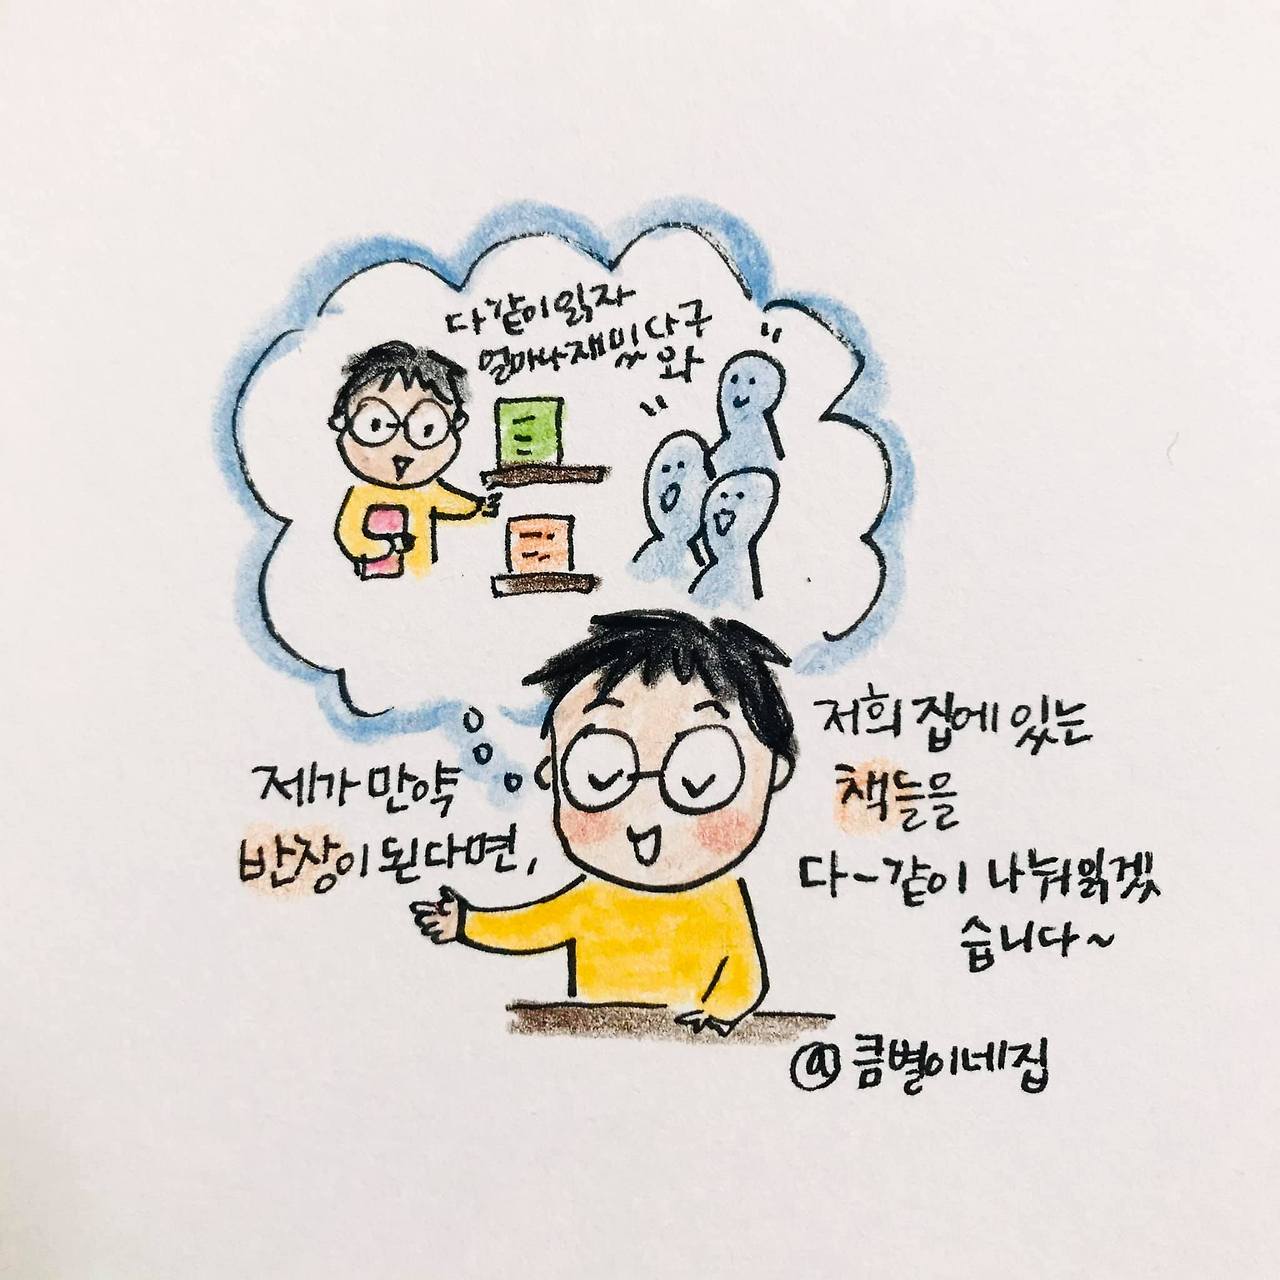 다같이 읽자
얼마나 재밌다구
와
제가 만약
반장이 된다면,
저희 집에 있는
책들을
다~같이 나눠읽겠
습니다~
@콤별이네집